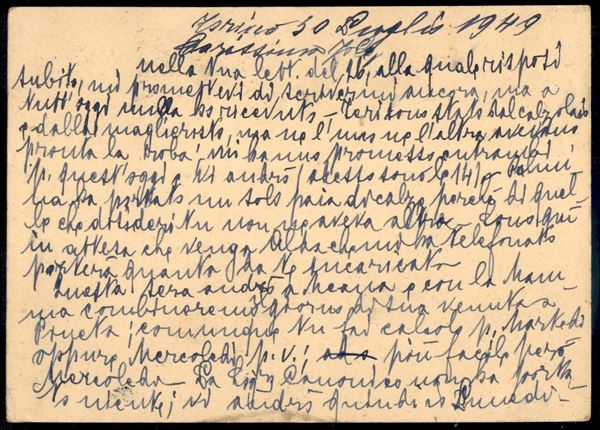 Torino 30 Luglio 1949
Carissimo
nella tua lett. del 26, alla quale risposi
subito, mi promettevi di scrivermi ancora, ma a
tutt'oggi nulla ho ricevuto - Ieri sono stato dal calzolaio
e dalla maglierista, ma nè l'uno nè l'altra avevano
pronta la roba; mi hanno promesso entrambi
p. quest'oggi e vi andrò
ma ha portato un solo paia di calze perchè di quel-
le che desideri tu non ne aveva altre - Sono qui
in attesa che venga Alda che mi ha telefonato
porterà quanto da te incaricato
Questa sera andrò a Meana e con la Mam-
ma combineremo il giorno di tua venuta a
; comunque tu fai calcolo p. Martedì
oppure Mercoledì p. v.; più facile però
Mercoledì - La Sig. non ha porta-
to niente; vi andrò quando Lunedì -